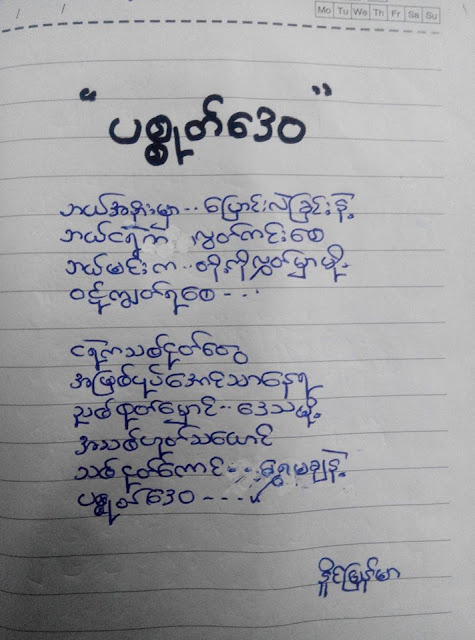 Mo Tu We Th Fr Sa Su
“ပစ္စုတ်ဒေဝ”
ဘယ်အစိုးမှာ.. ပြောင်းလဲခြင်းနဲ့
ဘယ်ငရဲက လွတ်ကင်းစေ
ဘယ်မင်းက.. တို့ကိုလွှတ်မှာမို့
ဝဋ်ကျွတ်ရစေ - - .
ငရဲကသစ်ငုတ်တွေ
အဖြစ်ပုပ်အောင်သာနေရ
ညစ်ထုတ်မှောင်.. ဒေသမို့
အသစ်ဟုတ်သယောင်
သစ်ငုတ်ကောင်- - . ရွှေမချနဲ့
ပစ္စုတ်ဒေဝ - - - .
နိုင်မြန်မာ